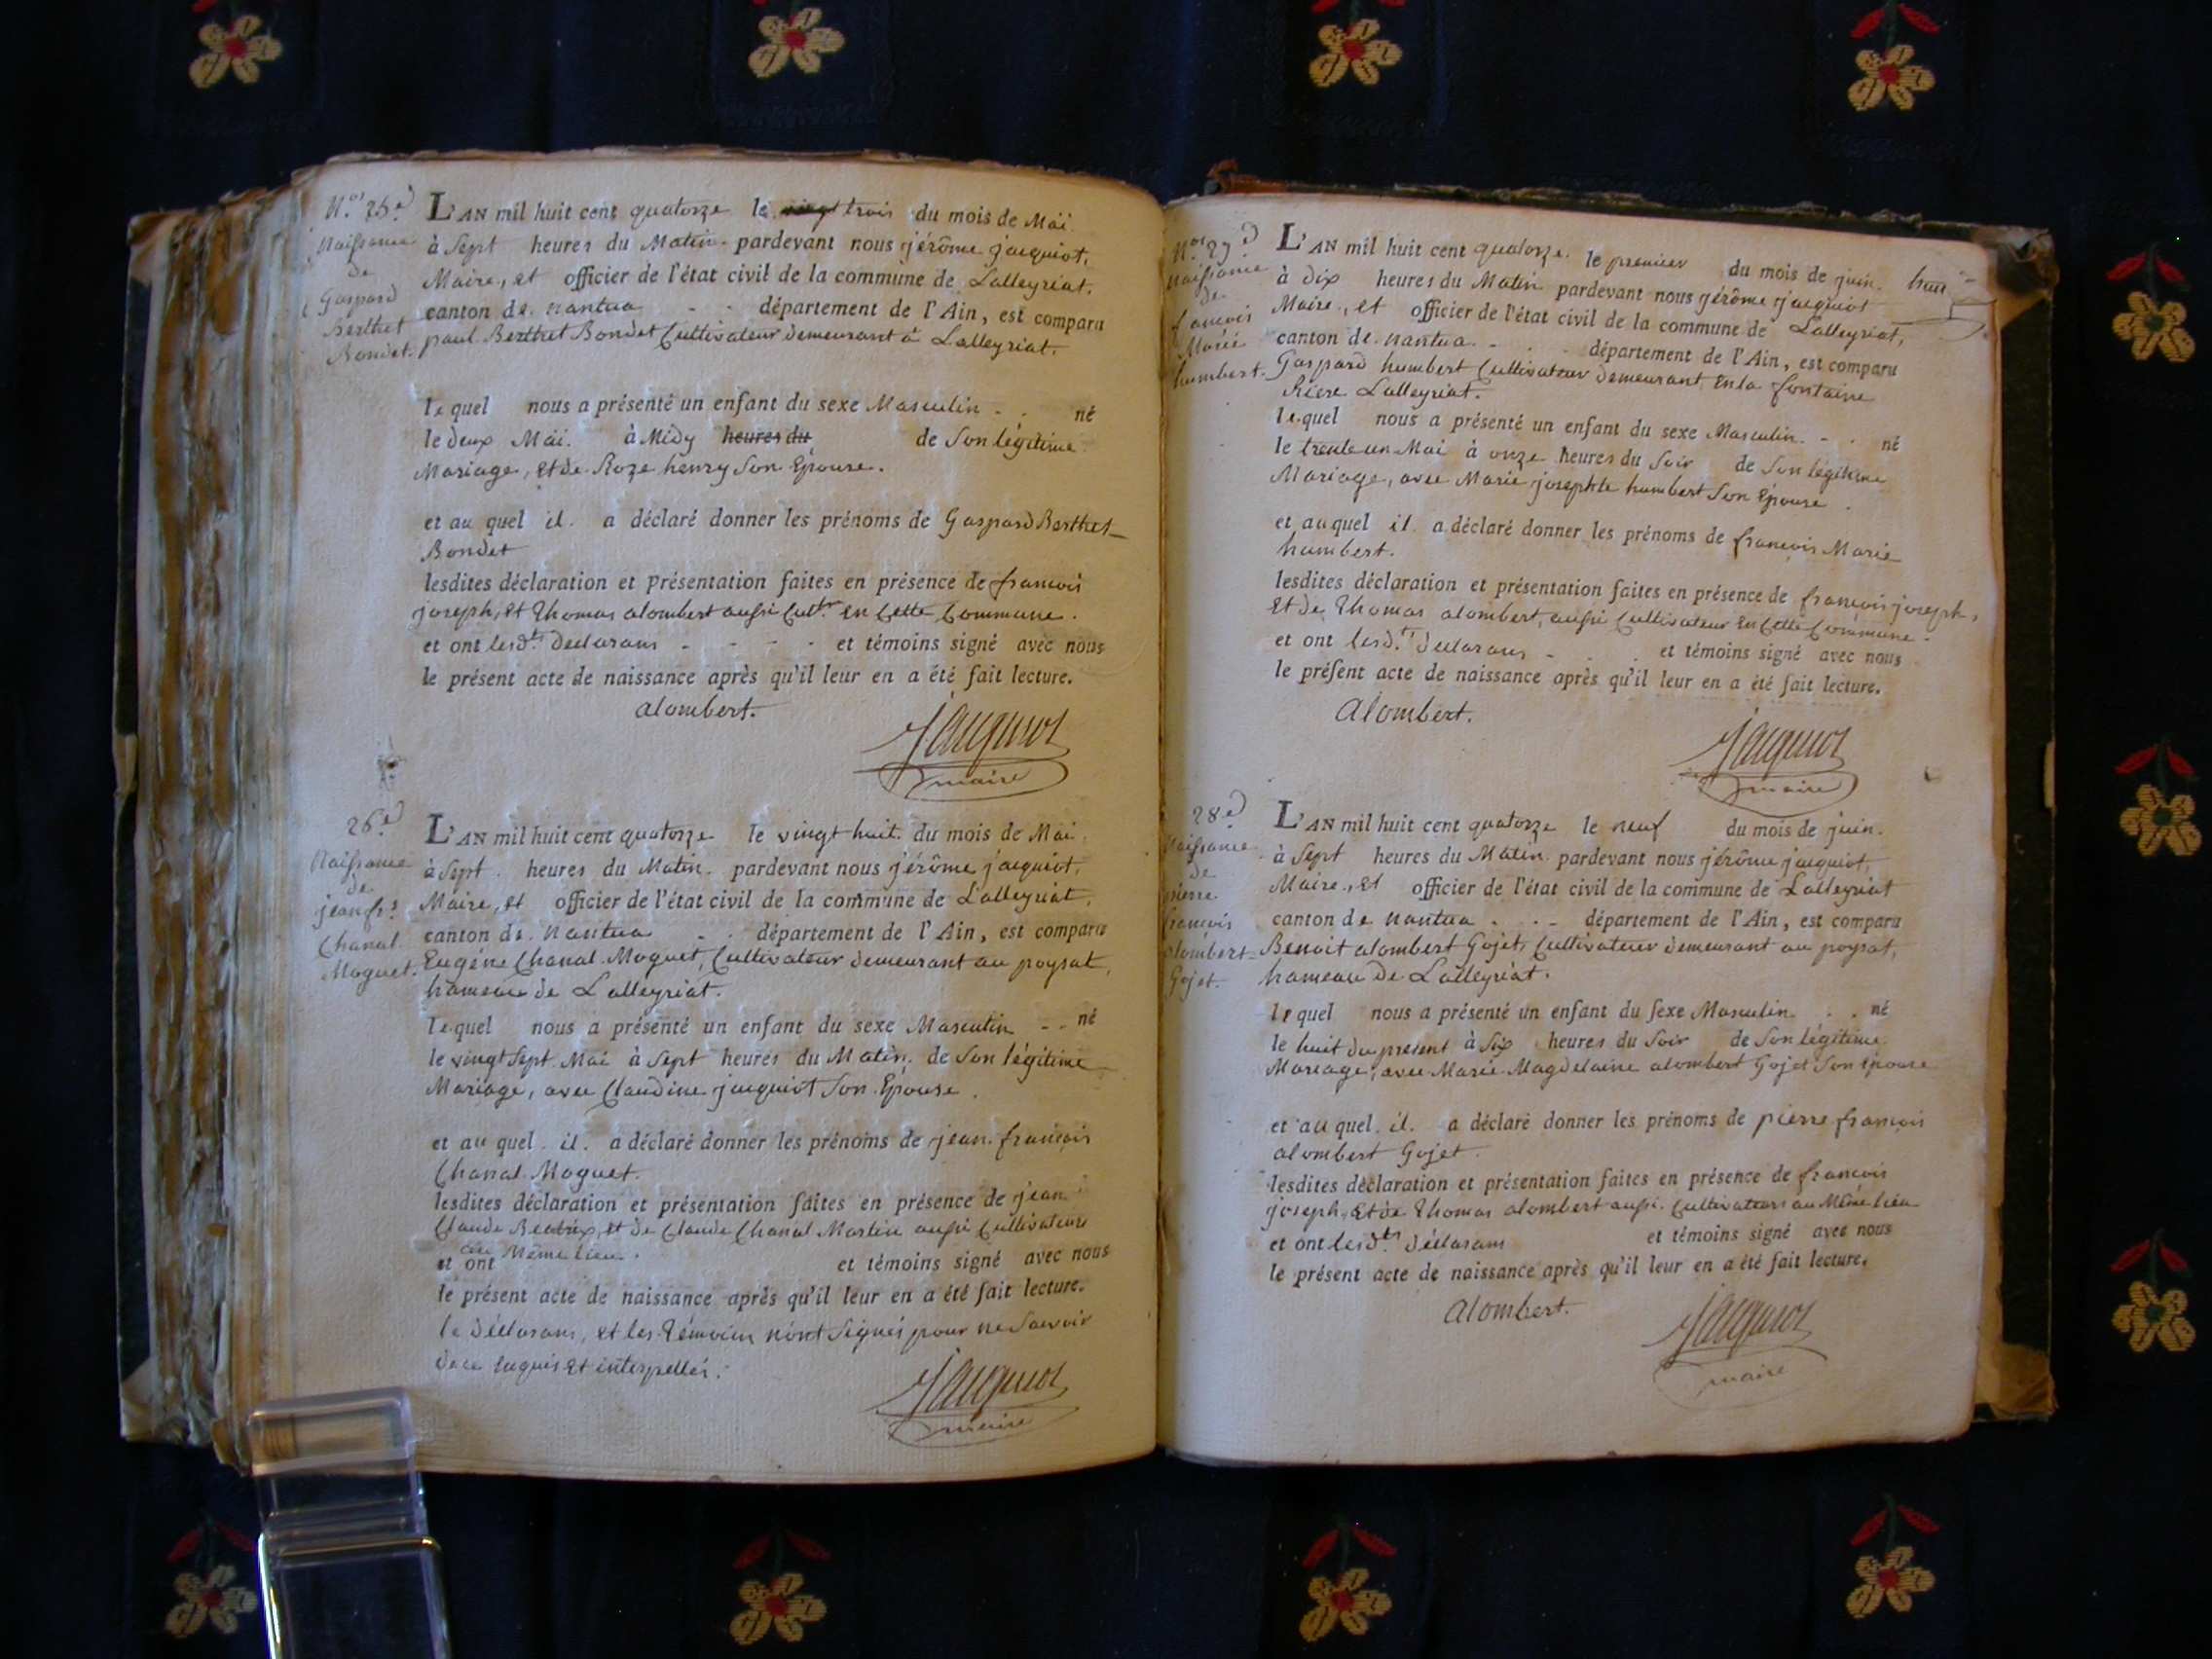 N.os 25.e
Naissance
de
Gaspard
Berthet
Bondet.
L'AN mil huit cent quatorze le vingt trois du mois de Mai
à Sept heures du Matin pardevant nous jérôme jacquiot,
Maire, et officier de l'état civil de la commune de Lalleyriat,
canton de nantua - - département de l'Ain, est comparu
paul Berthet Bondet Cultivateur demeurant à Lalleyriat.
lequel nous a présenté un enfant du sexe Masculin - . né
le deux Mai. à Midy heures du de Son légitime
Mariage, et de Roze henry Son Epouse.
et au quel il. a déclaré donner les prénoms de Gaspard Berthet
Bondet
lesdites déclaration et présentation faites en présence de francois
joseph, et Thomas alombert aussi Cult.rs en Cette Commune.
et ont lesd.ts Declarans - - - - et témoins signé avec nous
le présent acte de naissance après qu'il leur en a été fait lecture.
alombert.
Jacquiot
maire
26.e
Naissance
de
jean fr.s
Chanal
Moguet.
L'AN mil huit cent quatorze le vingt huit du mois de Mai
à Sept heures du Matin. pardevant nous jérôme jacquiot,
Maire, et officier de l'état civil de la commune de Lalleyriat,
canton de nantua - . département de l'Ain, est comparu
Eugéne Chanal Moguet, Cultivateur demeurant au poysat,
hameau de Lalleyriat.
lequel nous a présenté un enfant du sexe Masculin - - né
le vingt Sept Mai à Sept heures du Matin. de Son légitime
Mariage, avec Claudine jacquiot Son Epouse.
et au quel il. a déclaré donner les prénoms de jean francois
Chanal Moguet.
lesdites déclaration et présentation faites en présence de jean
Claude Beatrix, et de Claude Chanal Martin aussi Cultivateurs
au Même lieu.
et ont et témoins signé avec nous
le présent acte de naissance après qu'il leur en a été fait lecture.
le Déclarans, et les Témoins n'ont Signés pour ne Savoir
de ce enquis et interpellés.
Jacquiot
maire
N.os 27.e
Naissance
de
francois
Marie
humbert.
L'AN mil huit cent quatorze. le premier du mois de juin.
à dix heures du Matin pardevant nous jérôme jacquiot
Maire, et officier de l'état civil de la commune de Lalleyriat,
canton de nantua - . - département de l'Ain, est comparu
Gaspard humbert Cultivateur demeurant en la fontaine
Riere Lalleyriat.
lequel nous a présenté un enfant du sexe Masculin. - . né
le trente un Mai à onze heures du Soir de Son légitime
Mariage, avec Marie josephte humbert Son Epouse.
et auquel il. a déclaré donner les prénoms de francois Marie
humbert.
lesdites déclaration et présentation faites en présence de francois joseph,
et de Thomas alombert, aussi Cultivateur en Cette Commune.
et ont lesd.ts Declarans - . . et témoins signé avec nous
le présent acte de naissance après qu'il leur en a été fait lecture.
Alombert.
Jacquiot
maire
28.e
Naissance
de
pierre
francois
alombert
Gojet.
L'AN mil huit cent quatorze le neuf du mois de juin.
à Sept heures du Matin. pardevant nous jérôme jacquiot,
Maire, et officier de l'état civil de la commune de Lalleyriat
canton de nantua . - - département de l'Ain, est comparu
Benoit alombert Gojet, Cultivateur demeurant au poysat,
hameau de Lalleyriat.
lequel nous a présenté un enfant du sexe Masculin. . . né
le huit du present à Six heures du Soir de Son légitime
Mariage, avec Marie Magdelaine alombert Gojet Son épouse
et au quel il. a déclaré donner les prénoms de pierre francois
alombert Gojet.
lesdites déclaration et présentation faites en présence de francois
joseph, et de Thomas alombert aussi Cultivateurs au Même lieu
et ont lesd.ts Déclarans et témoins signé avec nous
le présent acte de naissance après qu'il leur en a été fait lecture.
Alombert.
Jacquiot
maire